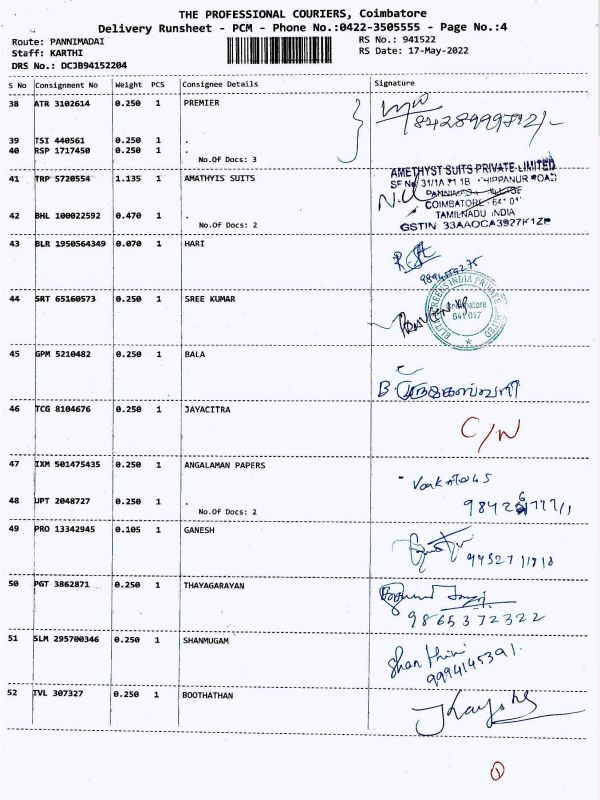 THE PROFESSIONAL COURIERS, Coimbatore
Delivery Runsheet - PCM - Phone No.:0422-3505555 - Page No.:4
Route: PANNIMADAI
RS No.: 941522
Staff: KARTHI
RS Date: 17-May-2022
DRS No.: DCJB94152204
S No Consignment No Weight PCS Consignee Details Signature
38 ATR 3102614 0.250 1 PREMIER
39 TSI 440561 0.250 1 .
40 RSP 1717450 0.250 1 .
No.Of Docs: 3
41 TRP 5720554 1.135 1 AMATHYIS SUITS
AMETHYST SUITS PRIVATE LIMITED
42 BHL 100022592 0.470 1 .
No.Of Docs: 2
COIMBATORE - 641 017
TAMILNADU INDIA
GSTIN 33AAOCA3927K1ZP
43 BLR 1950564349 0.070 1 HARI
44 SRT 65160573 0.250 1 SREE KUMAR
641 017
45 GPM 5210482 0.250 1 BALA
46 TCG 8104676 0.250 1 JAYACITRA
C/N
47 IXM 501475435 0.250 1 ANGALAMAN PAPERS
48 UPT 2048727 0.250 1 .
No.Of Docs: 2
49 PRO 13342945 0.105 1 GANESH
50 PGT 3862871 0.250 1 THAYAGARAYAN
9865372322
51 SLM 295700346 0.250 1 SHANMUGAM
Shanthini
9994145391.
52 IVL 307327 0.250 1 BOOTHATHAN